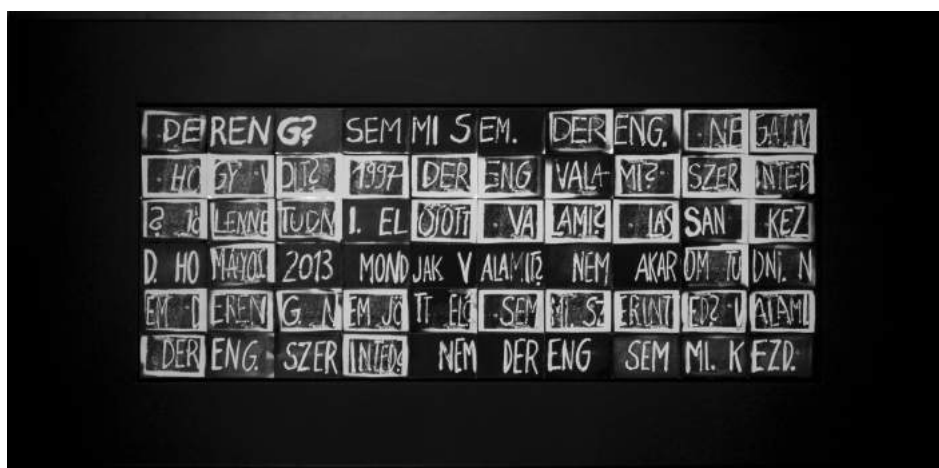 DERENG? SEMMI SEM. DERENG. NEGATIV
HOGY 1997- DERENG VALAMI? SZERINTED
? JÓ LENNE TUDNI. ELŐJÖTT VALAMI? LASSAN KEZ
D. HO 2013 MONDJAK VALAMIT? NEM AKAROM TUDNI. N
EM DERENG. NEM JÖTT ELŐ SEMMI. SZERINTED? VALAMI
DERENG. SZERINTED? NEM DERENG SEMMI. KEZD.